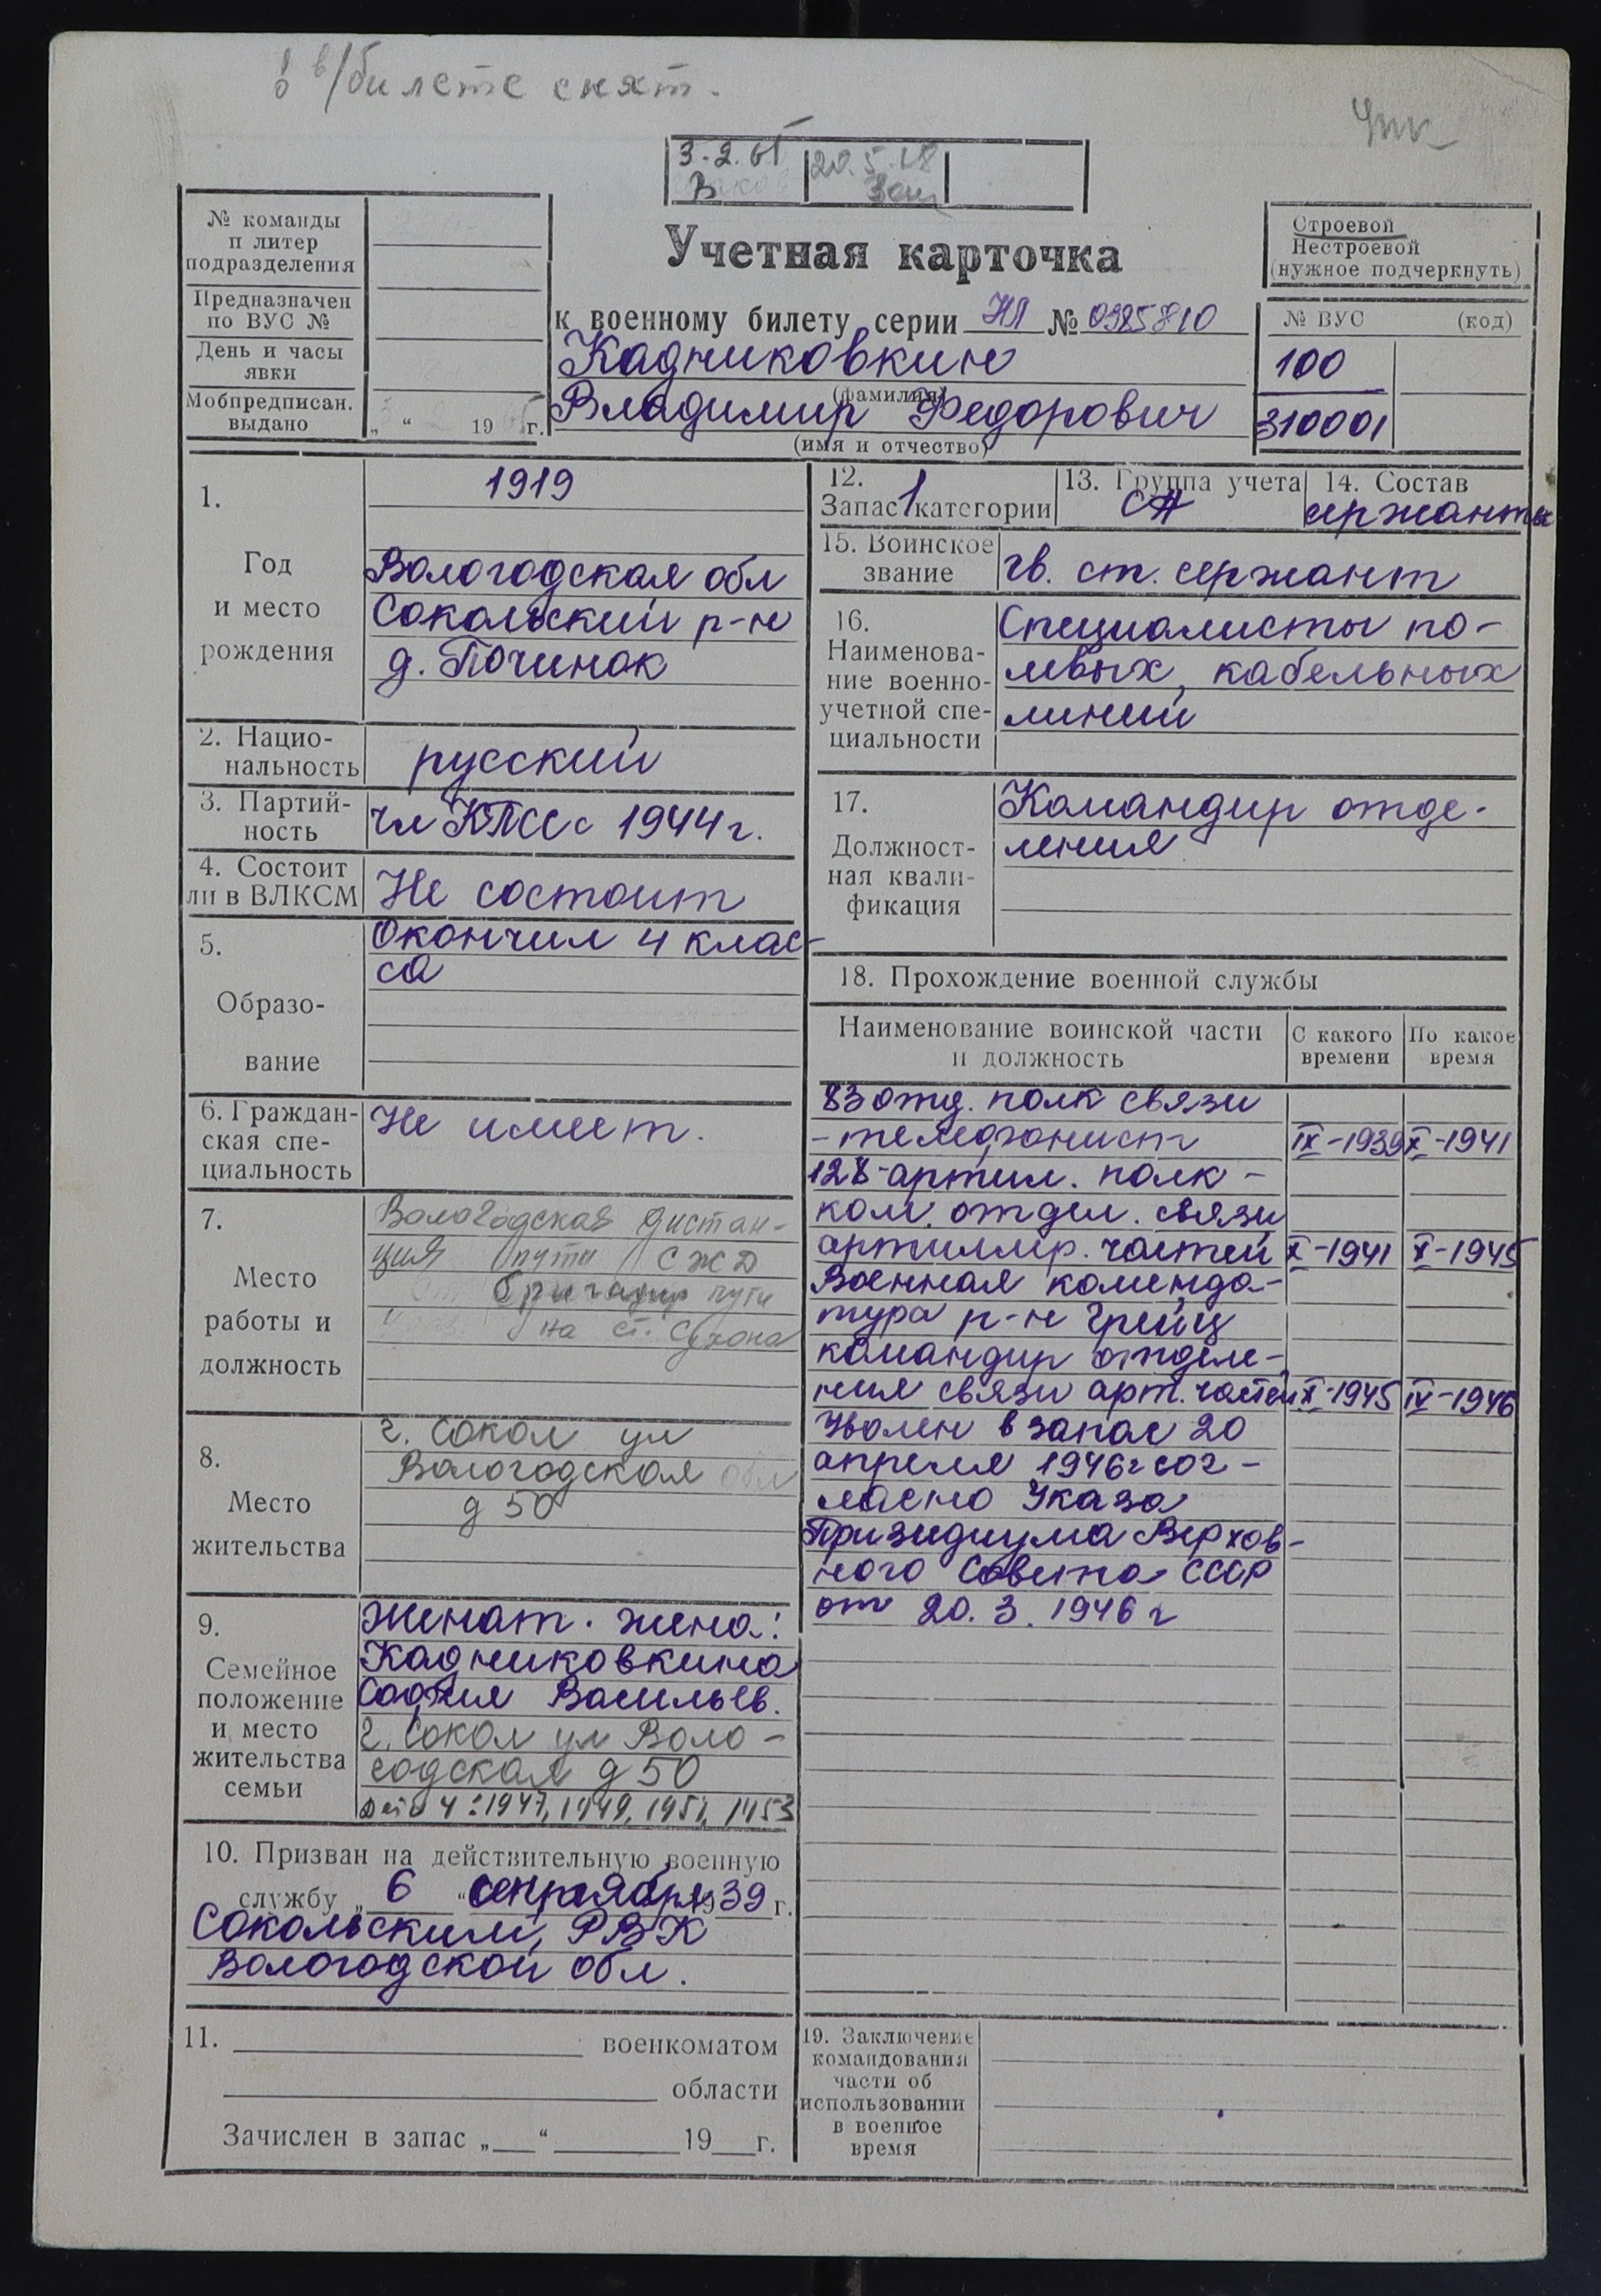 в/билете снят.
3-2.61
20.5.68
№ команды
п литер
подразделения
Предназначен
по ВУС №
День и часы
явки
Мобпредписан.
выдано
„ “ 19 г.
Учетная карточка
к военному билету серии НЛ № 0985810
Кадниковкин
(фамилия)
Владимир Федорович
(имя и отчество)
Строевой
Нестроевой
(нужное подчеркнуть)
№ ВУС (код)
100
310001
1.
Год
и место
рождения
1919
Вологодская обл
Сокольский р-н
д. Починок
2. Нацио-
нальность
русский
3. Партий-
ность
чл КПСС с 1944 г.
4. Состоит
ли в ВЛКСМ
Не состоит
5.
Образо-
вание
Окончил 4 клас-
са
6. Граждан-
ская спе-
циальность
Не имеет.
7.
Место
работы и
должность
Вологодская дистан-
ция пути СЖД
бригадир пути
на ст. Сухона
8.
Место
жительства
г. Сокол ул
Вологодская обл
д 50
9.
Семейное
положение
и место
жительства
семьи
Женат. жена:
Кадниковкина
София Васильев.
г. Сокол ул Воло-
годская д 50
Дети 4: 1947, 1949, 1951, 1953
10. Призван на действительную военную
службу „ 6 “ сентября 1939 г.
Сокольским, РВК
Вологодской обл.
11. военкоматом
области
Зачислен в запас „ “ 19 г.
12.
Запас 1 категории
13. Группа учета
СА
14. Состав
сержанты
15. Воинское
звание
гв. ст. сержант
16.
Наименова-
ние военно-
учетной спе-
циальности
Специалисты по-
левых, кабельных
линий
17.
Должност-
ная квали-
фикация
Командир отде-
ления
18. Прохождение военной службы
Наименование воинской части
и должность
С какого
времени
По какое
время
83 отд. полк связи
- телефонист IX-1939 X-1941
128 артил. полк -
ком. отдел. связи
артиллер. частей X-1941 X-1945
Военная коменда-
тура р-н Грейц
командир отделе-
ния связи арт. частей X-1945 IV-1946
Уволен в запас 20
апреля 1946 г сог-
ласно Указа
Призидиума Верхов-
ного Совета СССР
от 20. 3. 1946 г
19. Заключение
командования
части об
использовании
в военное
время